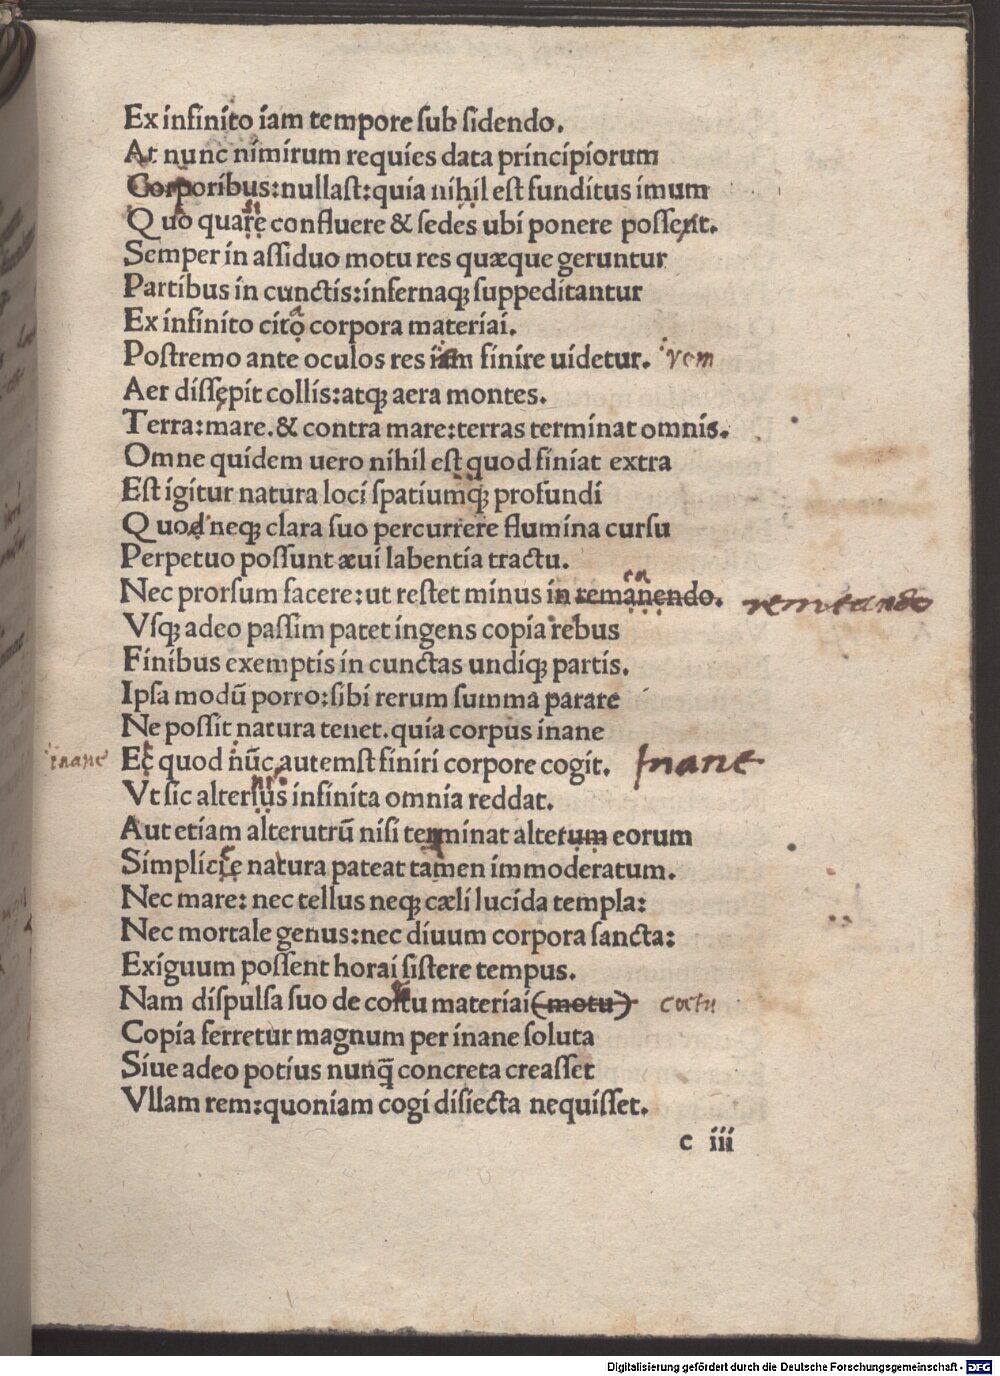 Ex infinito iam tempore sub sidendo.
At nunc nimirum requies data principiorum
Corporibus:nullast:quia nihil est funditus imum
Quo quare confluere & sedes ubi ponere possent.
Semper in assiduo motu res quæque geruntur
Partibus in cunctis:infernaqꝫ suppeditantur
Ex infinito cito corpora materiai.
Postremo ante oculos res iam finire uidetur. rem
Aer dissepit collis:atqꝫ aera montes.
Terra:mare.& contra mare:terras terminat omnis.
Omne quidem uero nihil est quod finiat extra
Est igitur natura loci spatiumqꝫ profundi
Quod neqꝫ clara suo percurrere flumina cursu
Perpetuo possunt æui labentia tractu.
Nec prorsum facere:ut restet minus in remanendo. remeando
Vsqꝫ adeo passim patet ingens copia rebus
Finibus exemptis in cunctas undiqꝫ partis.
Ipsa modū porro:sibi rerum summa parare
Ne possit natura tenet.quia corpus inane
inane Et quod nūc autemst finiri corpore cogit. Inane
Vt sic alterius infinita omnia reddat.
Aut etiam alterutrū nisi terminat alterum eorum
Simplicie natura pateat tamen immoderatum.
Nec mare: nec tellus neqꝫ cæli lucida templa:
Nec mortale genus:nec diuum corpora sancta:
Exiguum possent horai sistere tempus.
Nam dispulsa suo de coitu materiai (motu) coetu
Copia ferretur magnum per inane soluta
Siue adeo potius nunq̄ concreta creasset
Vllam rem:quoniam cogi disiecta nequisset.
c iii
Digitalisierung gefördert durch die Deutsche Forschungsgemeinschaft - DFG